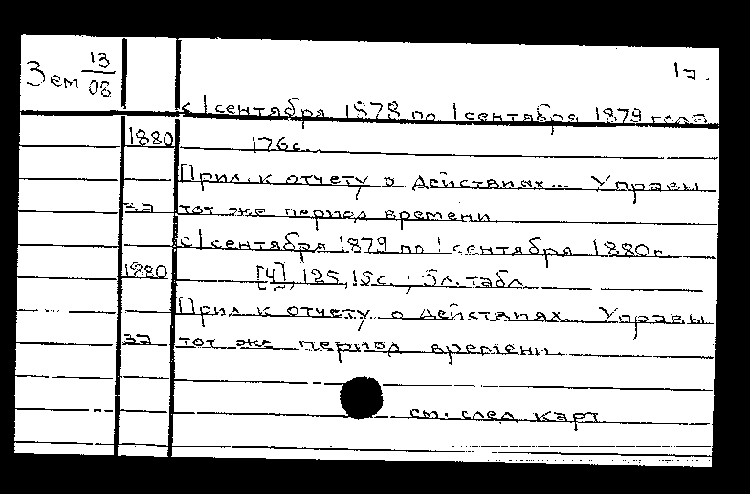 Зем 13/08 1з.
с 1 сентября 1878 по 1 сентября 1879 года
1880 176с.
Прил. к отчету о действиях... Управы
за тот же период времени
с 1 сентября 1879 по 1 сентября 1880г.
1880 [4], 125, 15с.; 5л. табл.
Прил. к отчету о действиях... Управы
за тот же период времени.
см. след. карт.